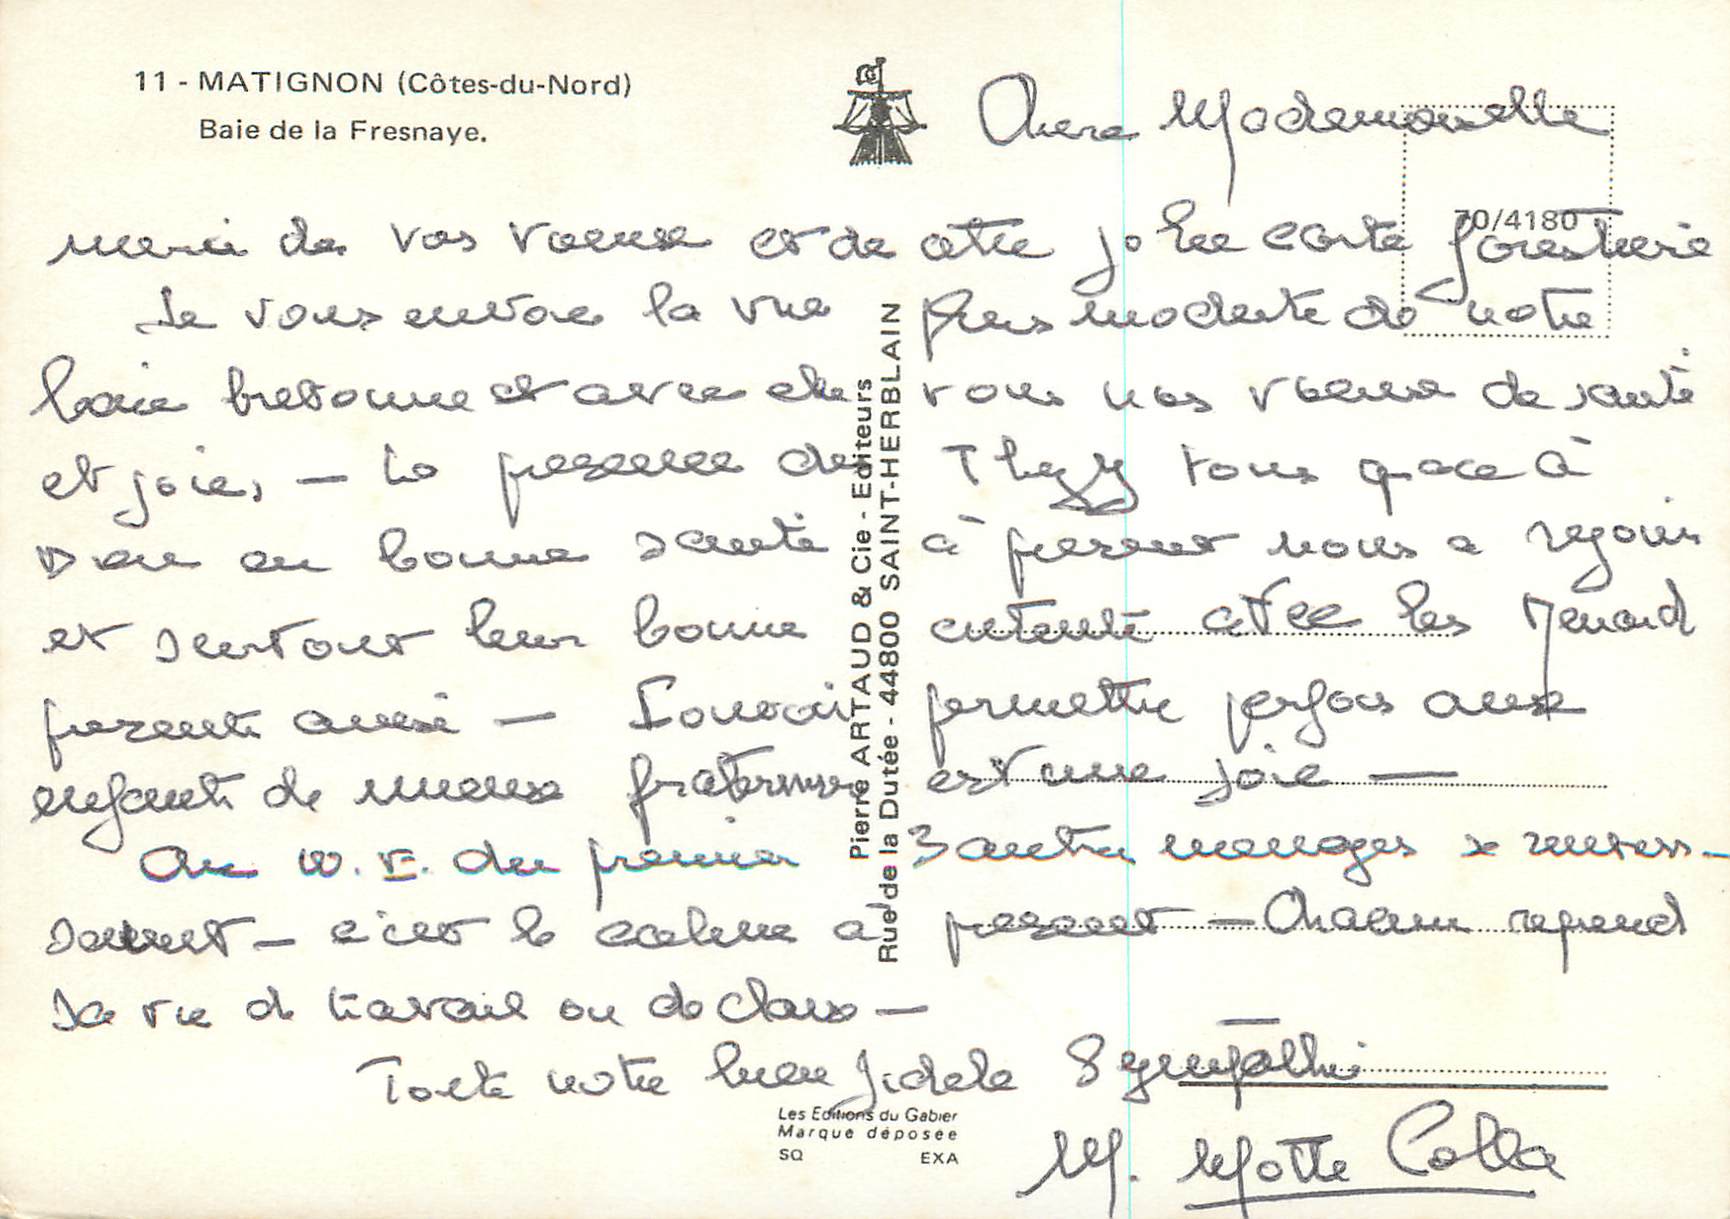 11 - MATIGNON (Côtes-du-Nord)
Baie de la Fresnaye.
70/4180
Pierre ARTAUD & Cie - Editeurs
Rue de la Dutée - 44800 SAINT-HERBLAIN
Chère Mademoiselle
merci de vos voeux et de cette jolie carte forestière
Je vous envoie la vue plus modeste de notre
baie bretonne et avec elle vous nos voeux de santé
et joie, — La présence des tous grace à
Dieu en bonne santé à présent nous a réjouis
et surtout leur bonne entente avec les Menard
présents aussi — Pouvoir permettre parfois aux
enfants de mieux fraterniser est une joie —
Au W.E. du premier 3 autres ménages se réunis-
saient — c'est le calme à présent — Chacun reprend
sa vie de travail ou de classe —
Toute notre bien fidèle Sympathie
M. Motte
Les Editions du Gabier
Marque déposée
SQ EXA